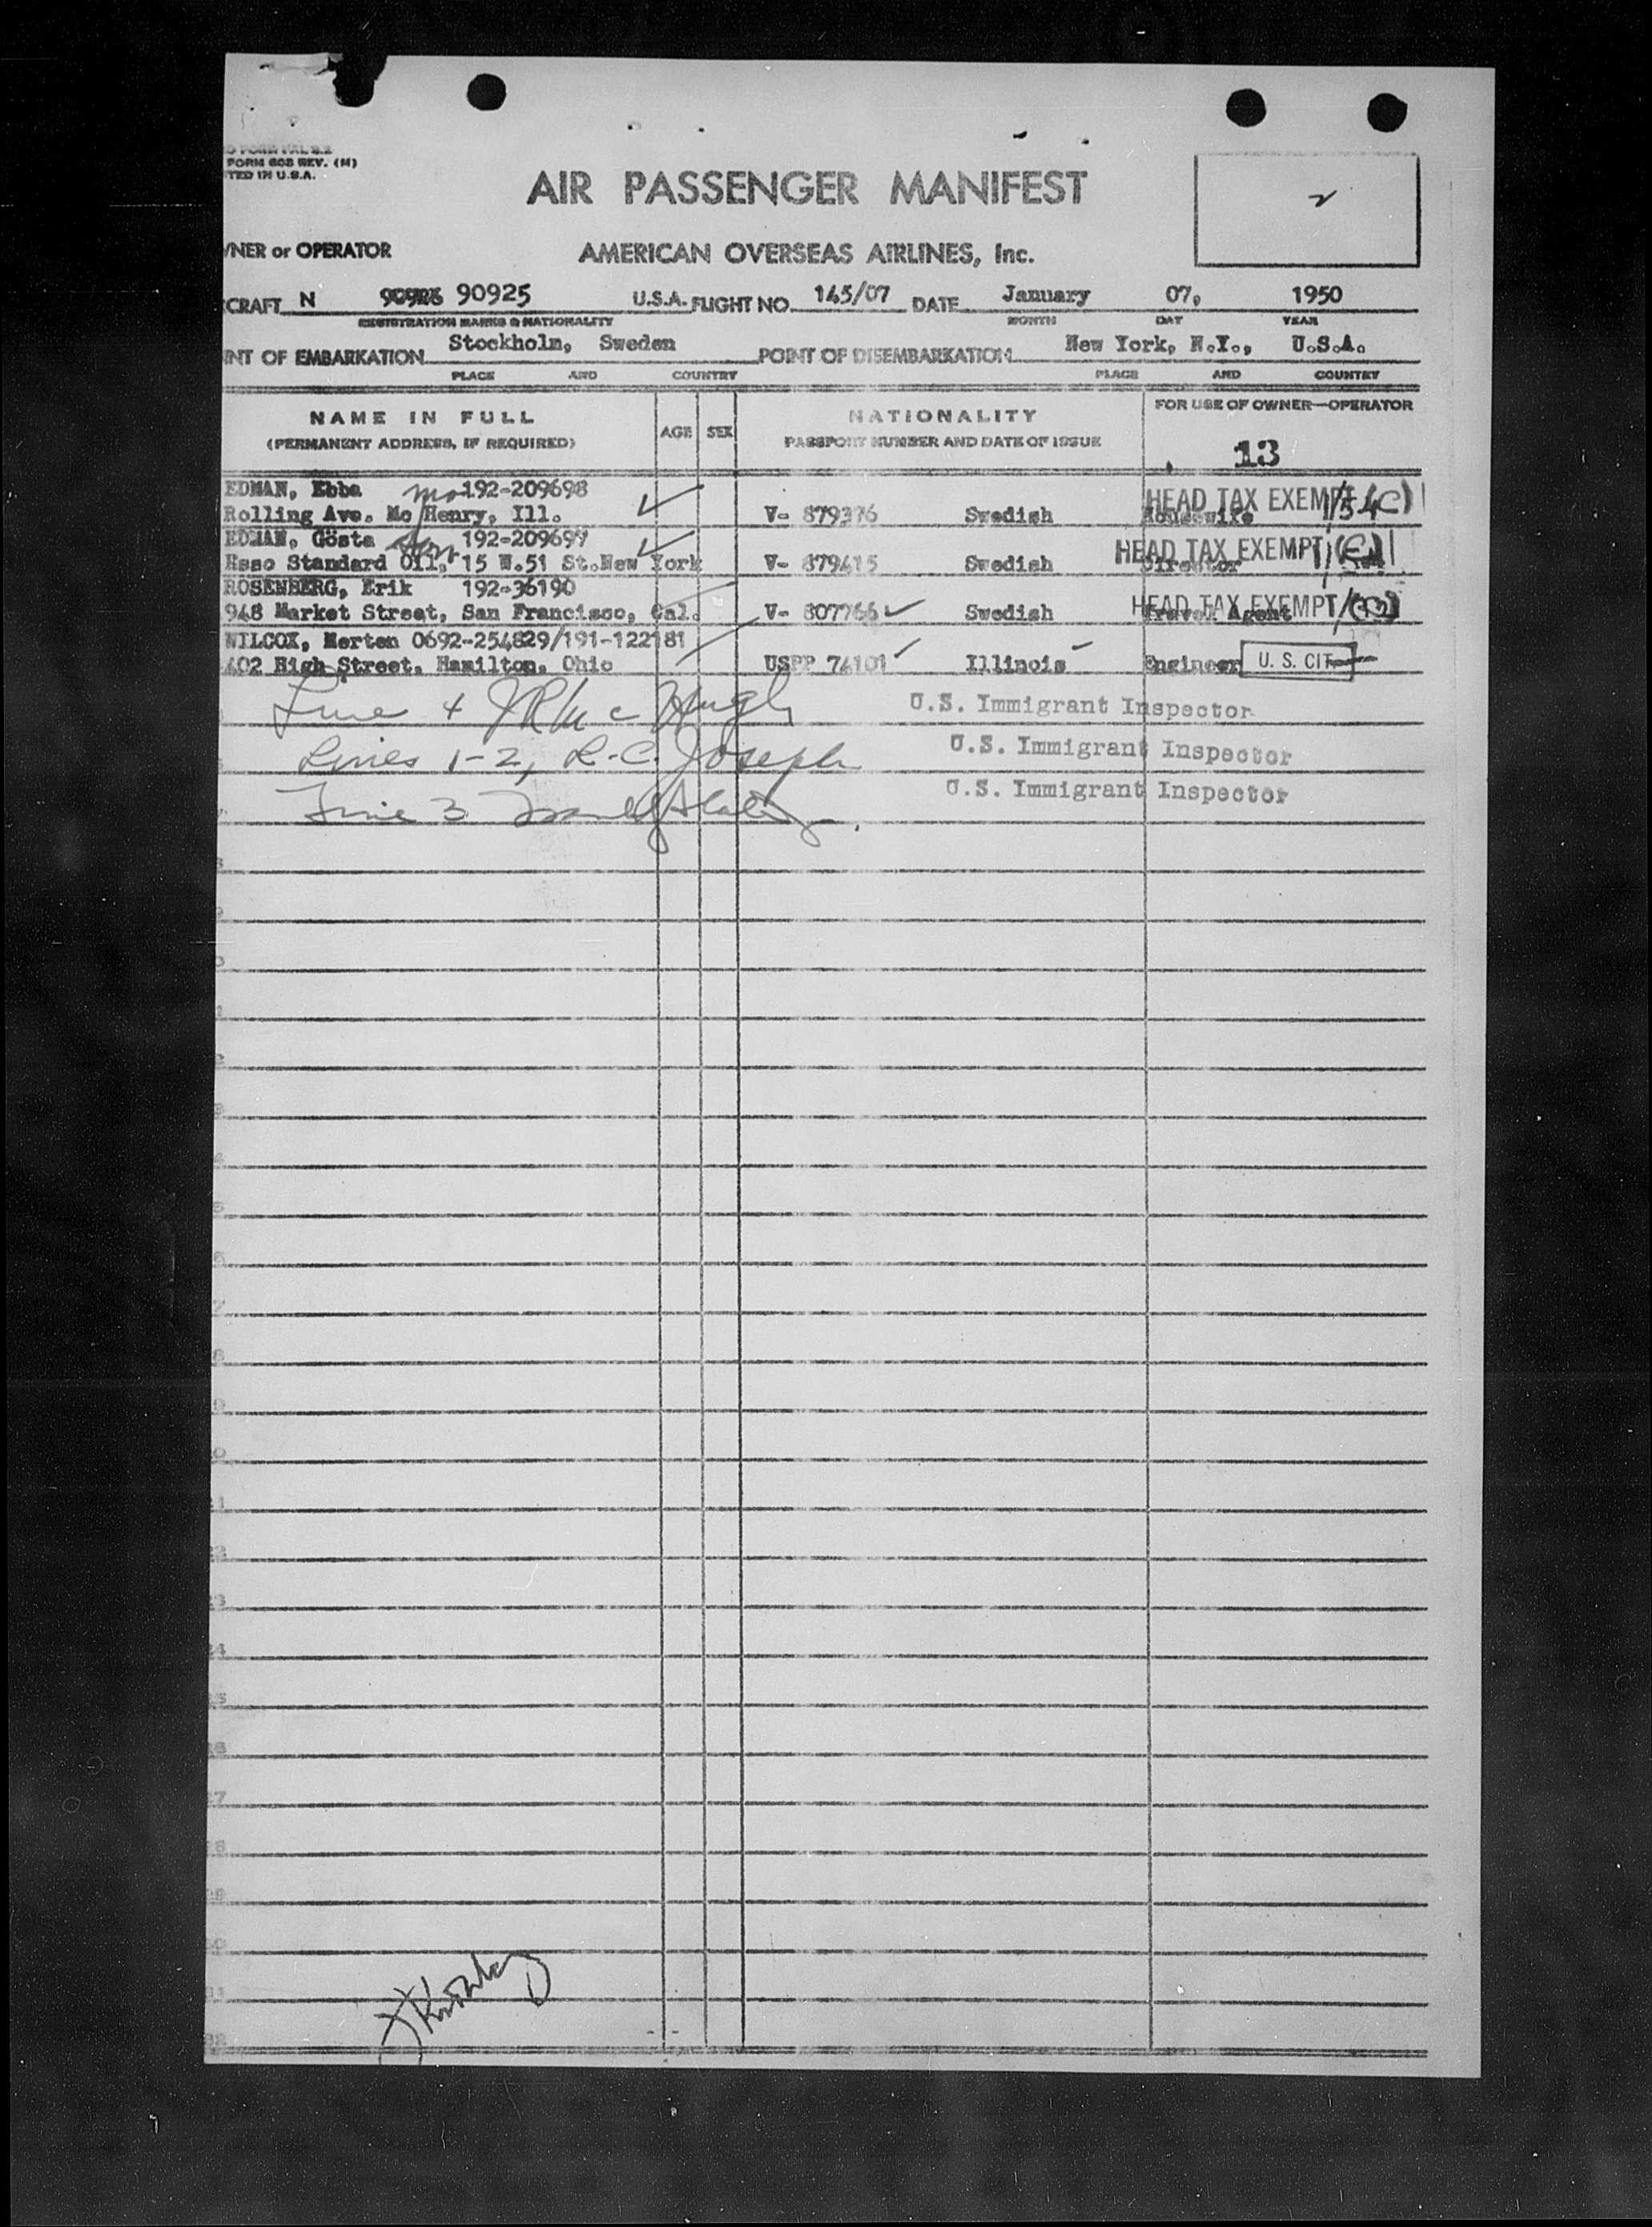 FORM 603 REV. (M)
TED IN U.S.A.
AIR PASSENGER MANIFEST
WNER or OPERATOR AMERICAN OVERSEAS AIRLINES, Inc.
CRAFT N 90925 U.S.A. FLIGHT NO. 145/07 DATE January 07, 1950
REGISTRATION MARKS & NATIONALITY MONTH DAY YEAR
INT OF EMBARKATION Stockholm, Sweden POINT OF DISEMBARKATION New York, N.Y., U.S.A.
PLACE AND COUNTRY PLACE AND COUNTRY
NAME IN FULL AGE SEX NATIONALITY FOR USE OF OWNER—OPERATOR
(PERMANENT ADDRESS, IF REQUIRED) PASSPORT NUMBER AND DATE OF ISSUE
13
EDMAN, Ebba 192-209698 HEAD TAX EXEMPT
Rolling Ave. Mc Henry, Ill. V- 879376 Swedish Housewife
EDMAN, Gösta 192-209697 HEAD TAX EXEMPT
Esso Standard Oil, 15 W.51 St.New York V- 879415 Swedish Director
ROSENBERG, Erik 192-36190 HEAD TAX EXEMPT
948 Market Street, San Francisco, Cal. V- 807766 Swedish Travel Agent
WILCOX, Merten 0692-254829/191-122181
402 High Street, Hamilton, Ohio USPP 74101 Illinois Engineer U. S. CIT
Line 4 J R Mc Hugh U.S. Immigrant Inspector
Lines 1-2, R.C. Joseph U.S. Immigrant Inspector
Line 3 U.S. Immigrant Inspector